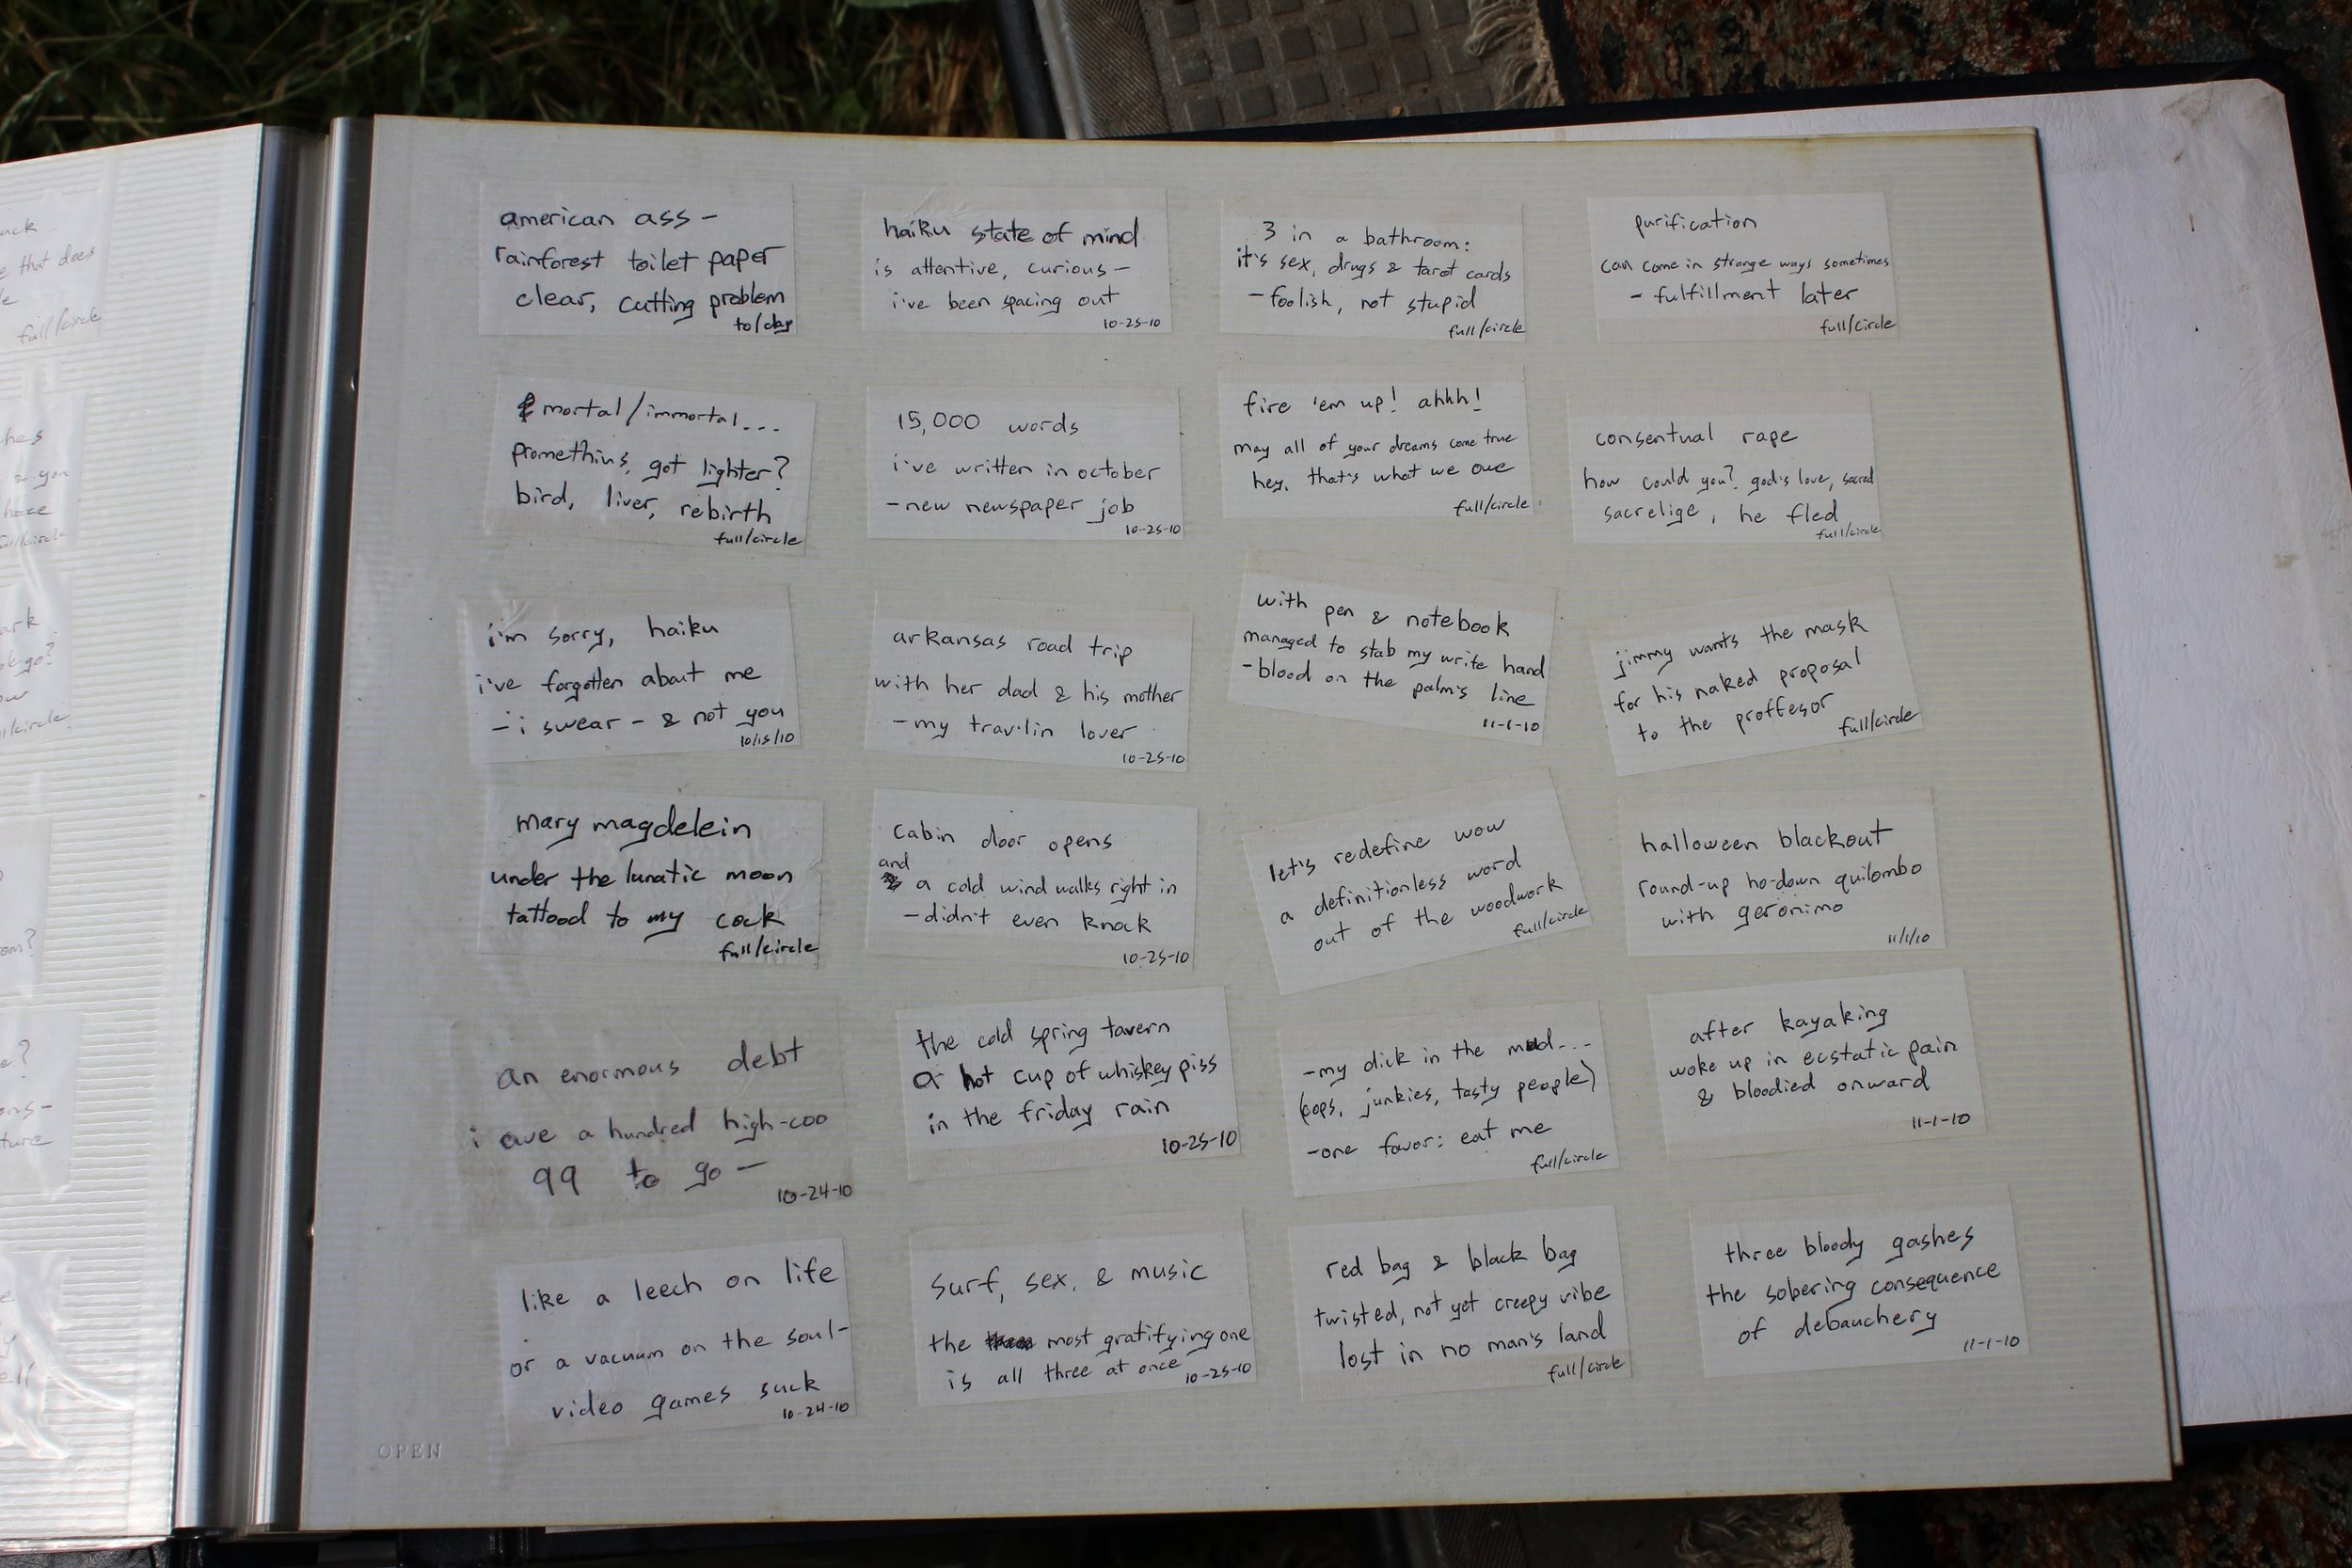 american ass -
rainforest toilet paper
clear, cutting problem
to/day
mortal/immortal...
promethius, got lighter?
bird, liver, rebirth
full/circle
i'm sorry, haiku
i've forgotten about me
- i swear - & not you
10/15/10
mary magdelein
under the lunatic moon
tattood to my cock
full/circle
an enormous debt
i owe a hundred high-coo
99 to go -
10-24-10
like a leech on life
or a vacuum on the soul-
video games suck
10-24-10
haiku state of mind
is attentive, curious -
i've been spacing out
10-25-10
15,000 words
i've written in october
- new newspaper job
10-25-10
arkansas road trip
with her dad & his mother
- my trav'lin lover
10-25-10
cabin door opens
and
a cold wind walks right in
- didn't even knock
10-25-10
the cold spring tavern
a hot cup of whiskey piss
in the friday rain
10-25-10
surf, sex, & music
the most gratifying one
is all three at once
10-25-10
3 in a bathroom:
it's sex, drugs & tarot cards
- foolish, not stupid
full/circle
fire 'em up! ahhh!
may all of your dreams come true
hey, that's what we owe
full/circle
with pen & notebook
managed to stab my write hand
- blood on the palm's line
11-1-10
let's redefine wow
a definitionless word
out of the woodwork
full/circle
- my dick in the mud...
(cops, junkies, tasty people)
- one favor: eat me
full/circle
red bag & black bag
twisted, not yet creepy vibe
lost in no man's land
full/circle
purification
can come in strange ways sometimes
- fulfillment later
full/circle
consentual rape
how could you? god's love, sacred
sacrelige, he fled
full/circle
jimmy wants the mask
for his naked proposal
to the proffesor
full/circle
halloween blackout
round-up ho-down quilombo
with geronimo
11/1/10
after kayaking
woke up in ecstatic pain
& bloodied onward
11-1-10
three bloody gashes
the sobering consequence
of debauchery
11-1-10
OPEN